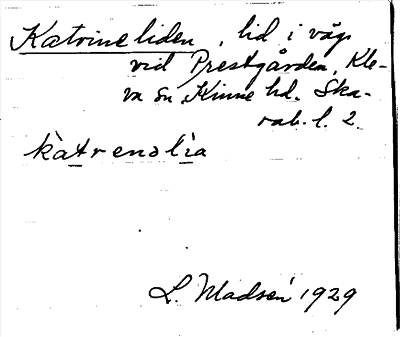 Katrineliden, lid i väg
vid Prestgården, Kle-
va sn, Kinne hd. Ska-
rab. l. 2.
katrenəlia
L. Madsén 1929